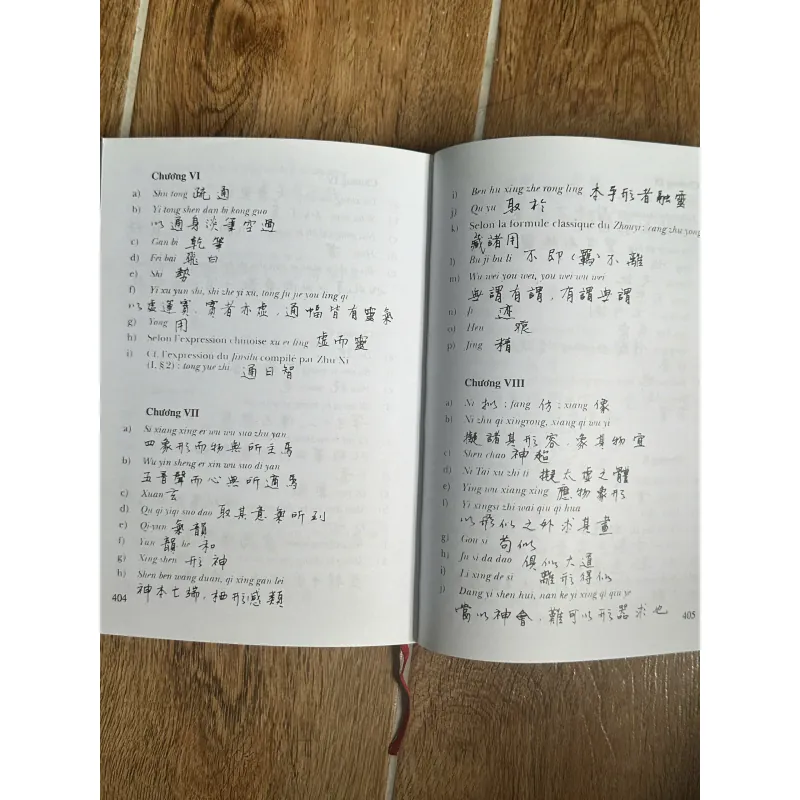 Chương VI
a) Shu tong 疏通
b) Yi tong shen dan bi kong guo
以通身淡筆空過
c) Gan bi 乾筆
d) Fei bai 飛白
e) Shi 勢
f) Yi xu yun shi, shi zhe yi xu, tong fu jie you ling qi
以虛運實, 實者亦虛, 通幅皆有靈氣
g) Yong 用
h) Selon l'expression chinoise xu er ling 虛而靈
i) Cf. l'expression du Jinsilu compilé par Zhu Xi
(I, § 2) : tong yue zhi 通曰智
Chương VII
a) Si xiang xing er wu wu suo zhu yan
四象形而物無所主焉
b) Wu yin sheng er xin wu suo di yan
五音聲而心無所適焉
c) Xuan 玄
d) Qu qi yiqi suo dao 取其意氣所到
e) Qi-yun 氣韻
f) Yun 韻 he 和
g) Xing shen 形神
h) Shen ben wang duan, qi xing gan lei
神本亡端, 栖形感類
404
i) Ben hu xing zhe rong ling 本乎形者融靈
j) Qu yu 取於
k) Selon la formule classique du Zhouyi : cang zhu yong
藏諸用
l) Bu ji bu li 不即 (羈) 不離
m) Wu wei you wei, you wei wu wei
無謂有謂, 有謂無謂
n) Ji 迹
o) Hen 痕
p) Jing 精
Chương VIII
a) Ni 拟 ; fang 仿 ; xiang 像
b) Ni zhu qi xingrong, xiang qi wu yi
擬諸其形容, 象其物宜
c) Shen chao 神超
d) Ni Tai xu zhi ti 擬太虛之體
e) Ying wu xiang xing 應物象形
f) Yi xingsi zhi wai qiu qi hua
以形似之外求其畫
g) Gou si 苟似
h) Ju si da dao 俱似大道
i) Li xing de si 離形得似
j) Dang yi shen hui, nan ke yi xing qi qiu ye
當以神會, 難可以形器求也
405